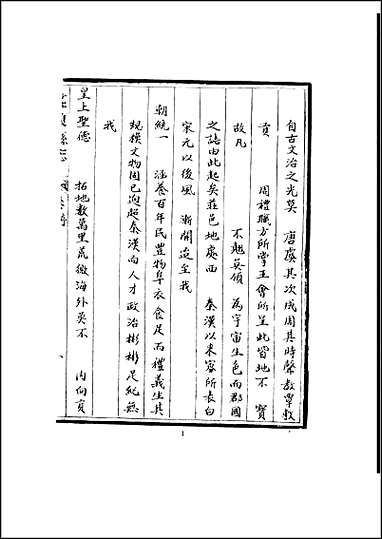 自古文治之光莫 唐虞其次成周其時聲教單敷
貢 周禮職方所掌王會所呈此皆地不 寶
故凡 不趨英領 為宇宙生色而郡國
之誌由此起矣莊邑地處西 秦漢以来寥所表白
宋元以後風 漸開迨至我
朝統一 涵養百年民豐物阜衣食足而禮義生其
規模文物固已迥超秦漢而人才政治彬彬足紀無
我
皇上聖德 拓地數萬里荒徼海外莫不 内向貢
縣誌
1